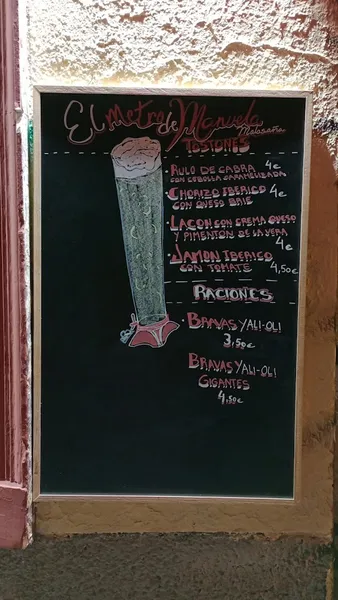 El Metro de Manuela
Malasaña
TOSTONES
RULO DE CABRA 4€
CON CEBOLLA CARAMELIZADA
CHORIZO IBERICO 4€
CON QUESO BRIE
LACON CON CREMA QUESO
Y PIMENTON DE LA VERA
4€
JAMON IBERICO
CON TOMATE 4,50€
RACIONES
BRAVAS Y ALI-OLI
3,50€
BRAVAS Y ALI-OLI
GIGANTES
4,50€